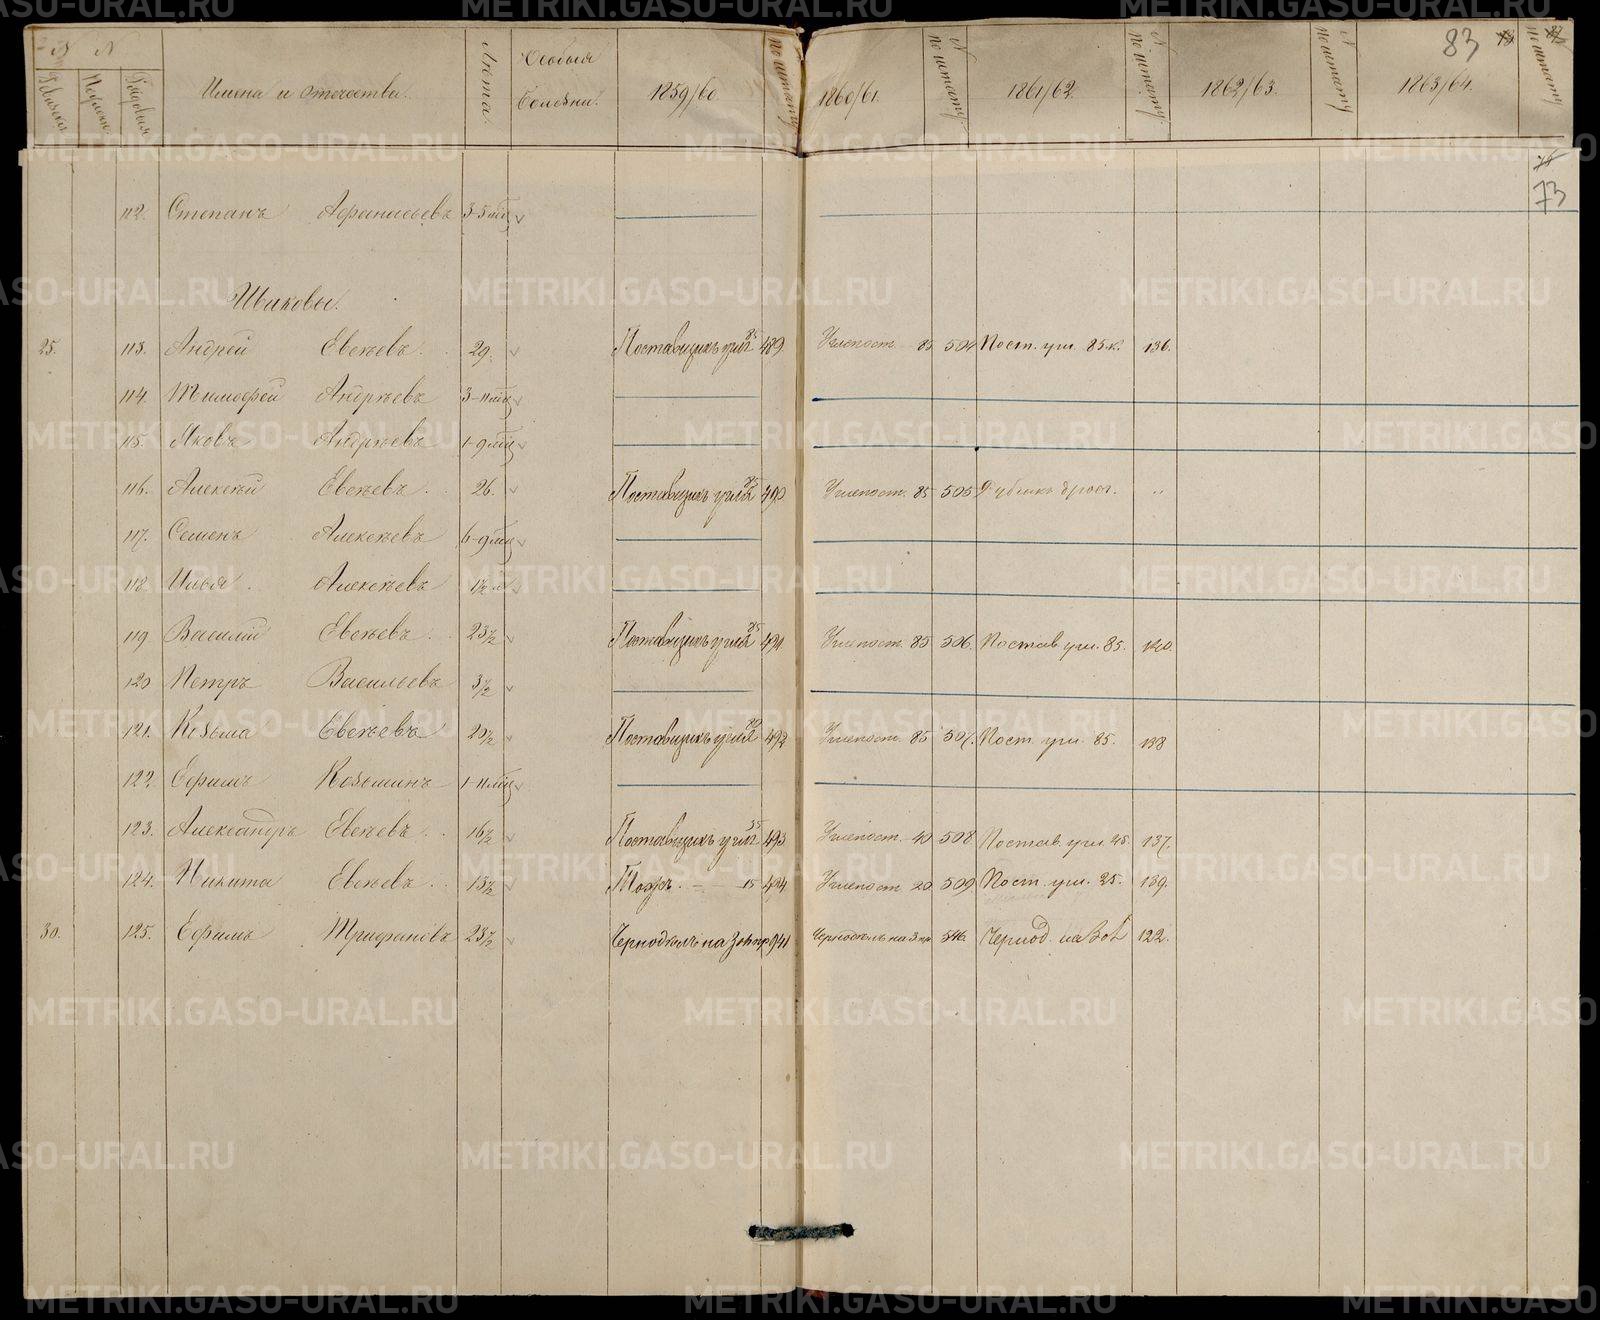 83
N N
Имена и отечества.
Лѣта.
Особыя болѣзни.
1859/60.
по штату
1860/61.
N по штату
1861/62.
N по штату
1862/63.
N по штату
1863/64.
по штату
73
112. Степанъ Афанасьевъ 3-5 мѣц
25. 113. Андрей Евсѣевъ 29. Поставщикъ угля 85 489. Углепост. 85 504 Пост. угл. 85 к. 136.
114. Тимофей Андрѣевъ 3-11 мѣц
115. Яковъ Андрѣевъ 1-9 мѣц
116. Алексѣй Евсѣевъ 26. Поставщикъ угля 85 490 Углепост. 85 505 Рубщикъ дров.
117. Семенъ Алексѣевъ 6-9 мѣц
118. Илья Алексѣевъ 1½ м
119 Василій Евсѣевъ 23½ Поставщикъ угля 85 491 Углепост. 85 506. Постав. угл. 85. 140.
120 Петръ Васильевъ 3½
121. Козьма Евсѣевъ 20½ Поставщикъ угля 492 Углепост. 85 507. Пост. угл. 85. 138
122. Ефимъ Козьминъ 1-11 мѣц
123. Александръ Евсѣевъ 16½ Поставщикъ угля 35 493 Углепост. 40 508 Постав. угл. 137.
124. Никита Евсѣевъ 13½ Тоже 15 494 Углепост 20 509 Пост. угл. 25. 139.
30. 125. Ефимъ Трифановъ 23½ Чернодѣлъ на 941 Чернодѣлъ на 546. Чернод. на 122.
METRIKI.GASO-URAL.RU